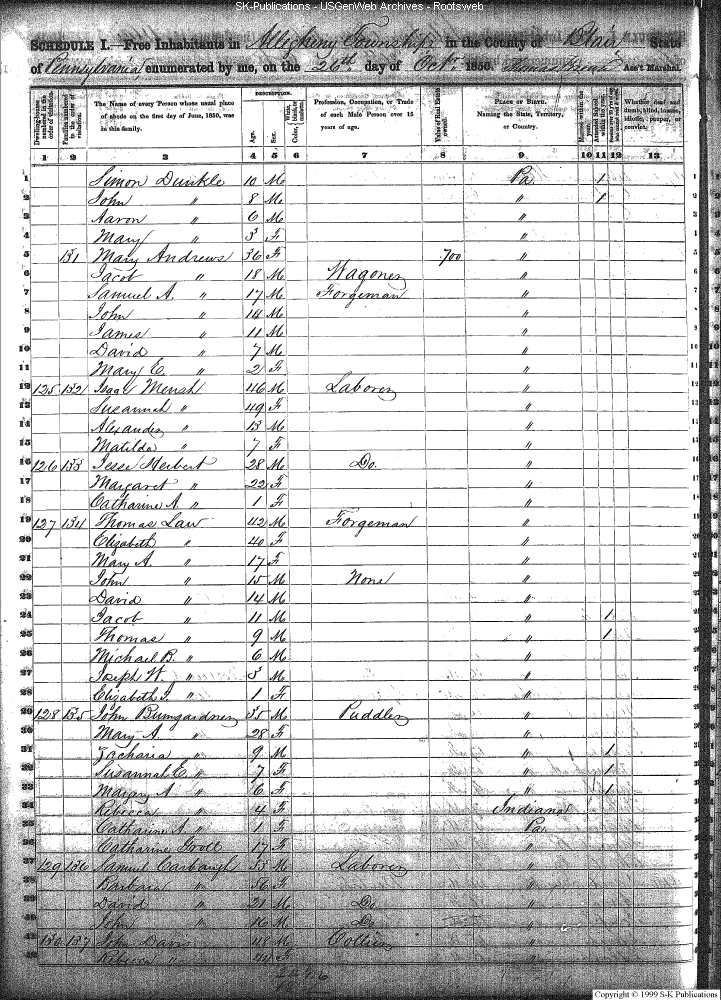 SK-Publications - USGenWeb Archives - Rootsweb
SCHEDULE I.—Free Inhabitants in Allegheny Township in the County of Blair State
of Pennsylvania enumerated by me, on the 26th day of Octr. 1850. Ass't Marshal.
DESCRIPTION.
Dwelling-houses numbered in the order of visitation.
Families numbered in the order of visitation.
The Name of every Person whose usual place of abode on the first day of June, 1850, was in this family.
Age.
Sex.
White, black, or mulatto.
Color,
Profession, Occupation, or Trade of each Male Person over 15 years of age.
Value of Real Estate owned.
PLACE OF BIRTH. Naming the State, Territory, or Country.
Married within the year.
Attended School within the year.
Whether deaf and dumb, blind, insane, idiotic, pauper, or convict.
1 2 3 4 5 6 7 8 9 10 11 12 13
1 Simon Dunkle 10 M Pa. 1 1
2 John " 8 M " 1 2
3 Aaron " 6 M " 3
4 Mary " 3 F " 4
5 131 Mary Andrews 36 F 700 " 5
6 Jacob " 18 M Wagoner " 6
7 Samuel A. " 17 M Forgeman " 7
8 John " 14 M " 8
9 James " 11 M " 9
10 David " 7 M " 10
11 Mary E. " 2 F " 11
12 125 132 Isaac Mensh 46 M Laborer " 12
13 Susannah " 49 F " 13
14 Alexander " 13 M " 14
15 Matilda " 7 F " 15
16 126 133 Jesse Herbert 28 M Do. " 16
17 Margaret " 22 F " 17
18 Catharine A. " 1 F " 18
19 127 134 Thomas Law 42 M Forgeman " 19
20 Elizabeth " 40 F " 20
21 Mary A. " 17 F " 21
22 John " 15 M None " 22
23 David " 14 M " 23
24 Jacob " 11 M " 1 24
25 Thomas " 9 M " 1 25
26 Michael B. " 6 M " 26
27 Joseph W. " 3 M " 27
28 Elizabeth J. " 1 F " 28
29 128 135 John Bumgardner 35 M Puddler " 29
30 Mary A. " 28 F " 30
31 Zacharia " 9 M " 1 31
32 Susannah E. " 7 F " 1 32
33 Margary A " 6 F " 1 33
34 Rebecca " 4 F Indiana 34
35 Catharine A " 1 F Pa. 35
36 Catharine 17 F " 36
37 129 136 Samuel Carbaugh 55 M Laborer " 37
38 Barbara " 56 F " 38
39 David " 21 M Do. " 39
40 John " 16 M Do. " 40
41 130 137 John Davis 48 M Collier " 41
42 Rebecca " F " 42
Copyright © 1999 S-K Publications